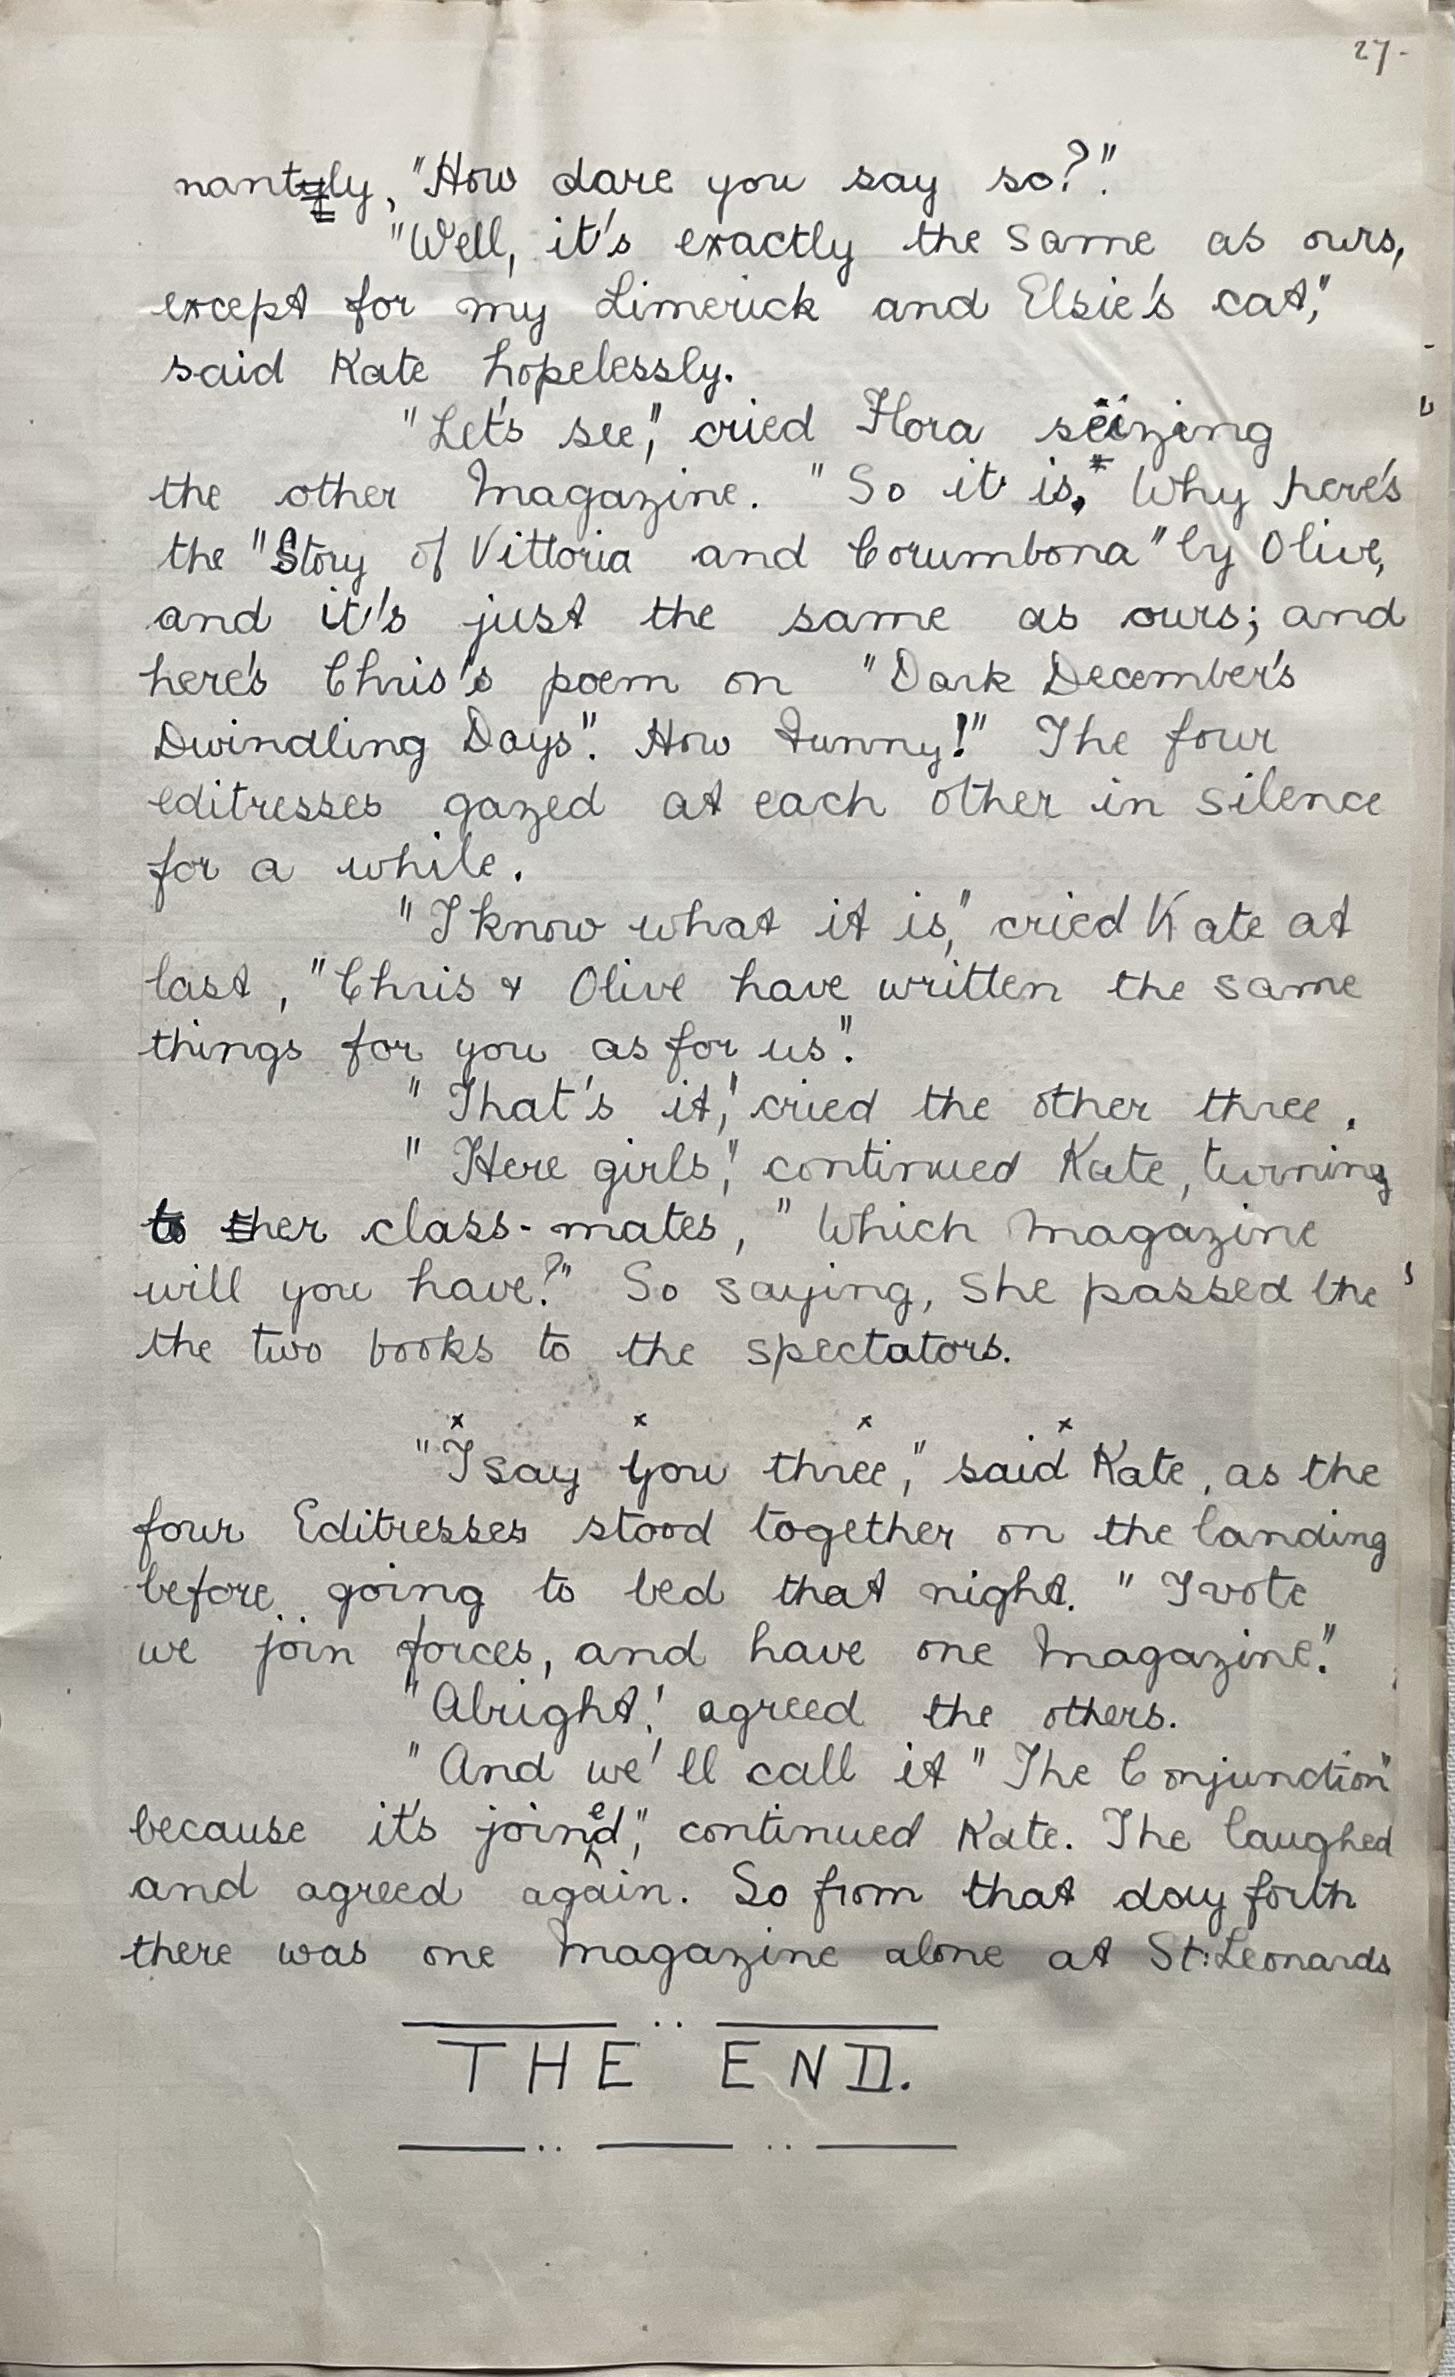 27.
nantly, "How dare you say so?".
"Well, it's exactly the same as ours,
except for my Limerick and Elsie's cat,"
said Kate hopelessly.
"Let's see," cried Flora seizing
the other Magazine. "So it is, Why here's
the "Story of Vittoria and Corumbona" by Olive,
and it's just the same as ours; and
here's Chris's poem on "Dark December's
Dwindling Days". How funny!" The four
editresses gazed at each other in silence
for a while.
"I know what it is," cried Kate at
last, "Chris & Olive have written the same
things for you as for us".
"That's it," cried the other three.
"Here girls," continued Kate, turning
to her class-mates, "Which Magazine
will you have?" So saying, she passed the
the two books to the spectators.
x x x x
"I say you three," said Kate, as the
four Editresses stood together on the landing
before going to bed that night. "I vote
we join forces, and have one Magazine."
"Alright," agreed the others.
"And we'll call it "The Conjunction"
because it's joined," continued Kate. The laughed
and agreed again. So from that day forth
there was one Magazine alone at St: Leonards
THE END.